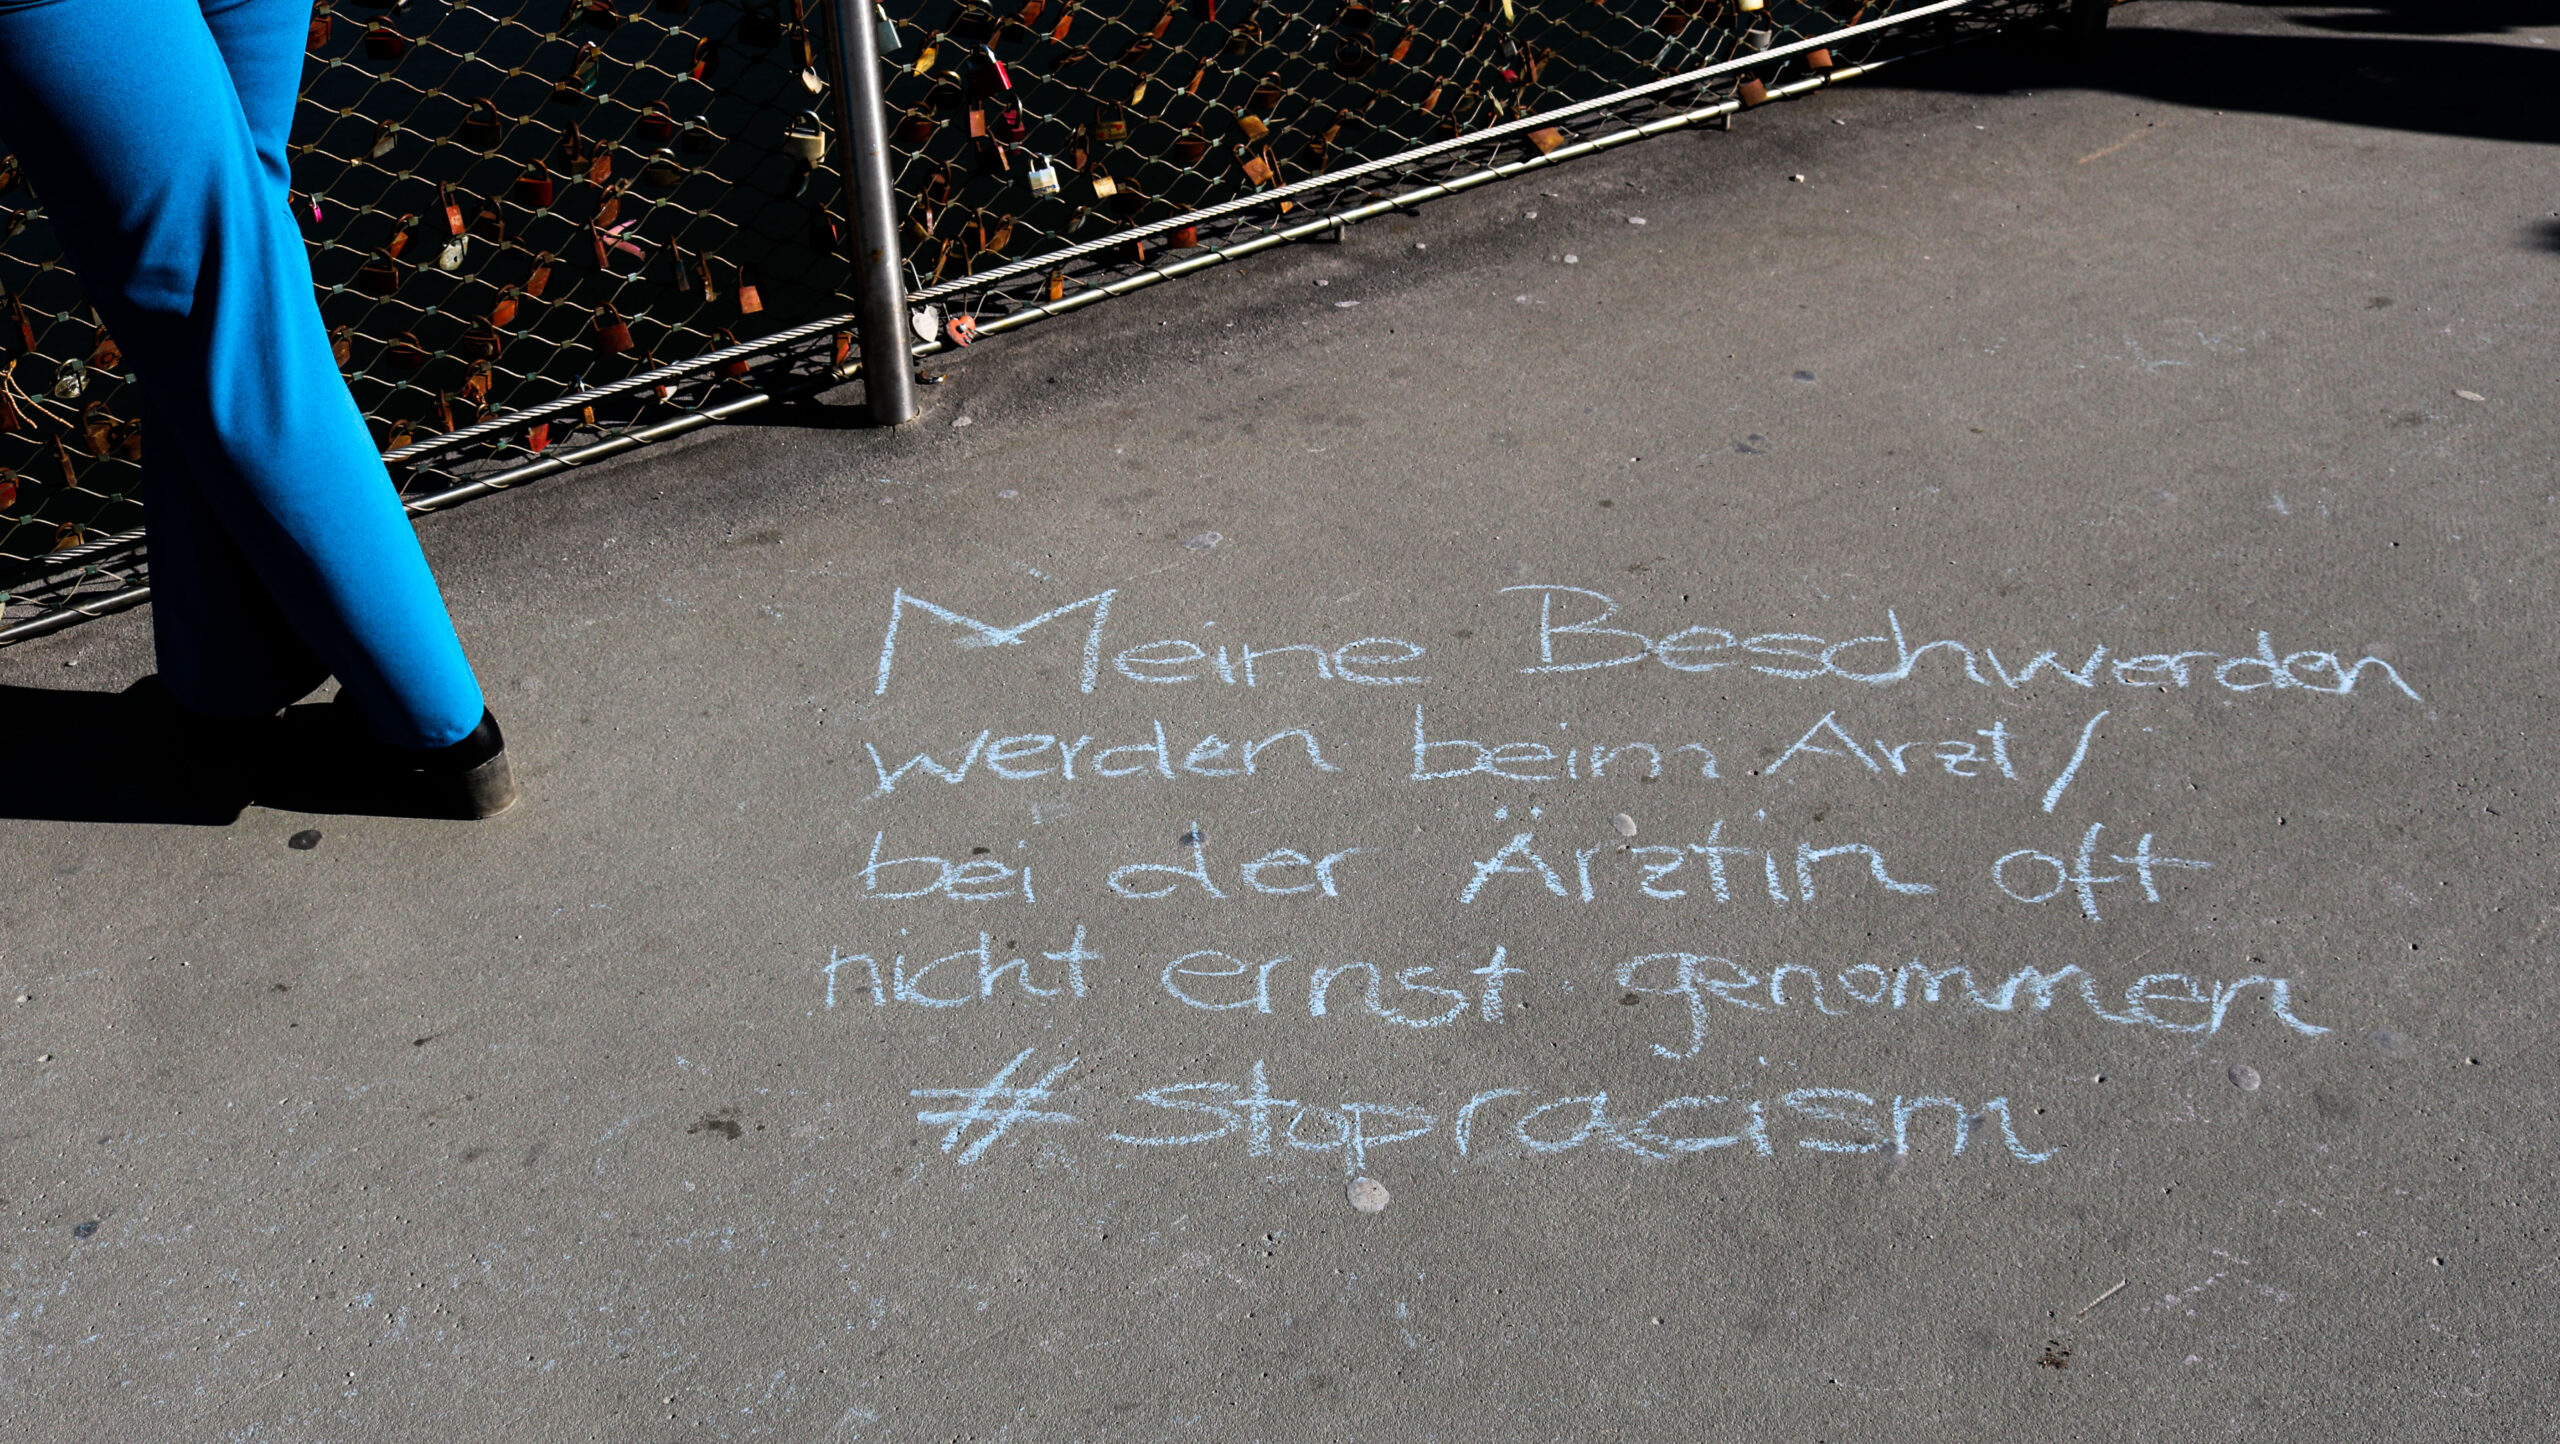 Meine Beschwerden
werden beim Arzt/
bei der Ärztin oft
nicht ernst genommen
#stopracism